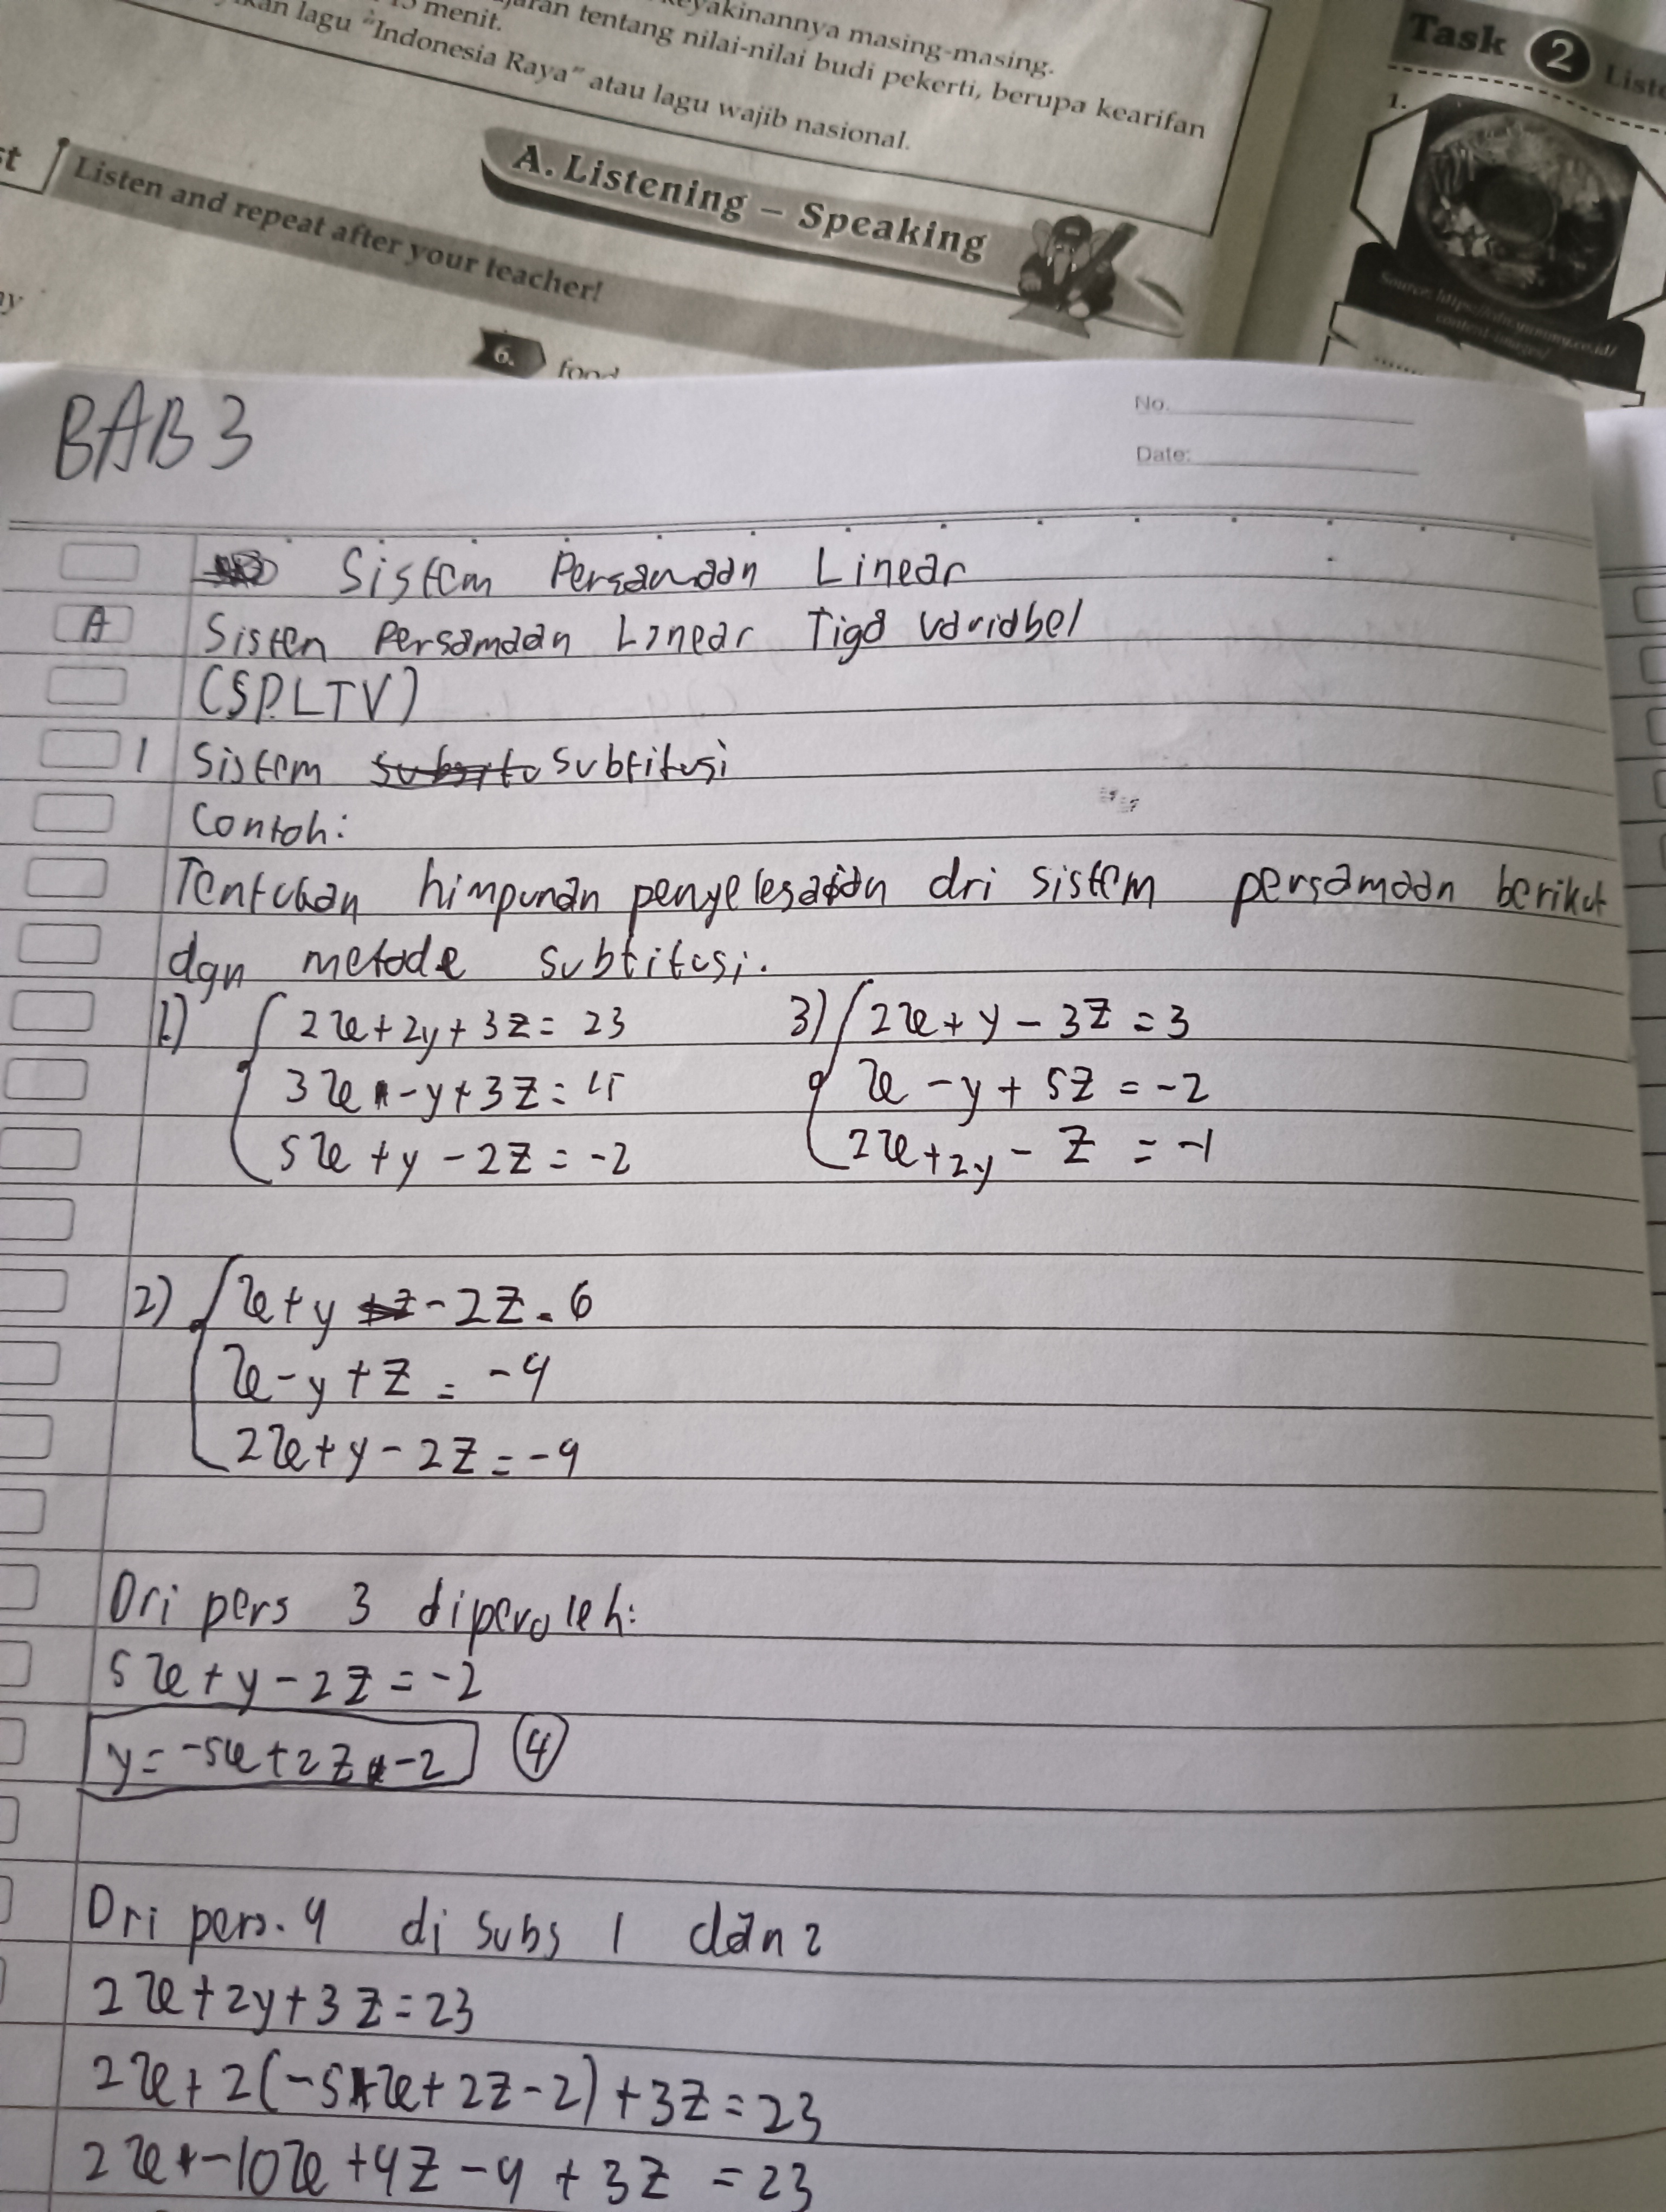 keyakinannya masing-masing.
tentang nilai-nilai budi pekerti, berupa kearifan
menit.
lagu "Indonesia Raya" atau lagu wajib nasional.
A. Listening – Speaking
Listen and repeat after your teacher!
6. food
Task 2
1.
BAB 3
No.
Date:
Sistem Persamaan Linear
A Sisten Persamaan Linear Tiga variabel
(SPLTV)
1 Sistem subtitusi
Contoh:
Tentukan himpunan penyelesaian dri sistem persamaan berikut
dgn metode subtitusi.
1.) 2x + 2y + 3z = 23
3x - y + 3z =
5x + y - 2z = -2
3) 2x + y - 3z = 3
x - y + 5z = -2
2x + 2y - z = -1
2) x + y - 2z = 6
x - y + z = -4
2x + y - 2z = -9
Dri pers 3 diperoleh:
5x + y - 2z = -2
y = -5x + 2z - 2 (4)
Dri pers. 4 di subs 1 dan 2
2x + 2y + 3z = 23
2x + 2(-5x + 2z - 2) + 3z = 23
2x - 10x + 4z - 4 + 3z = 23